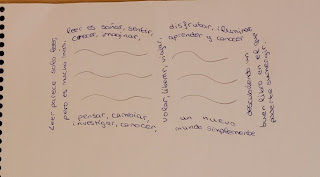 Leer parece soño leer,
pero es mucho más.
Leer es soñar, sentir,
conocer, imaginar,
pensar, cambiar,
investigar, conocer,
volar, liberar, viajar,
disfrutar, iluminar
aprender y conocer
un nuevo
mundo simplemente
descubriendo un
buen libro en el que
poderte sumergir.